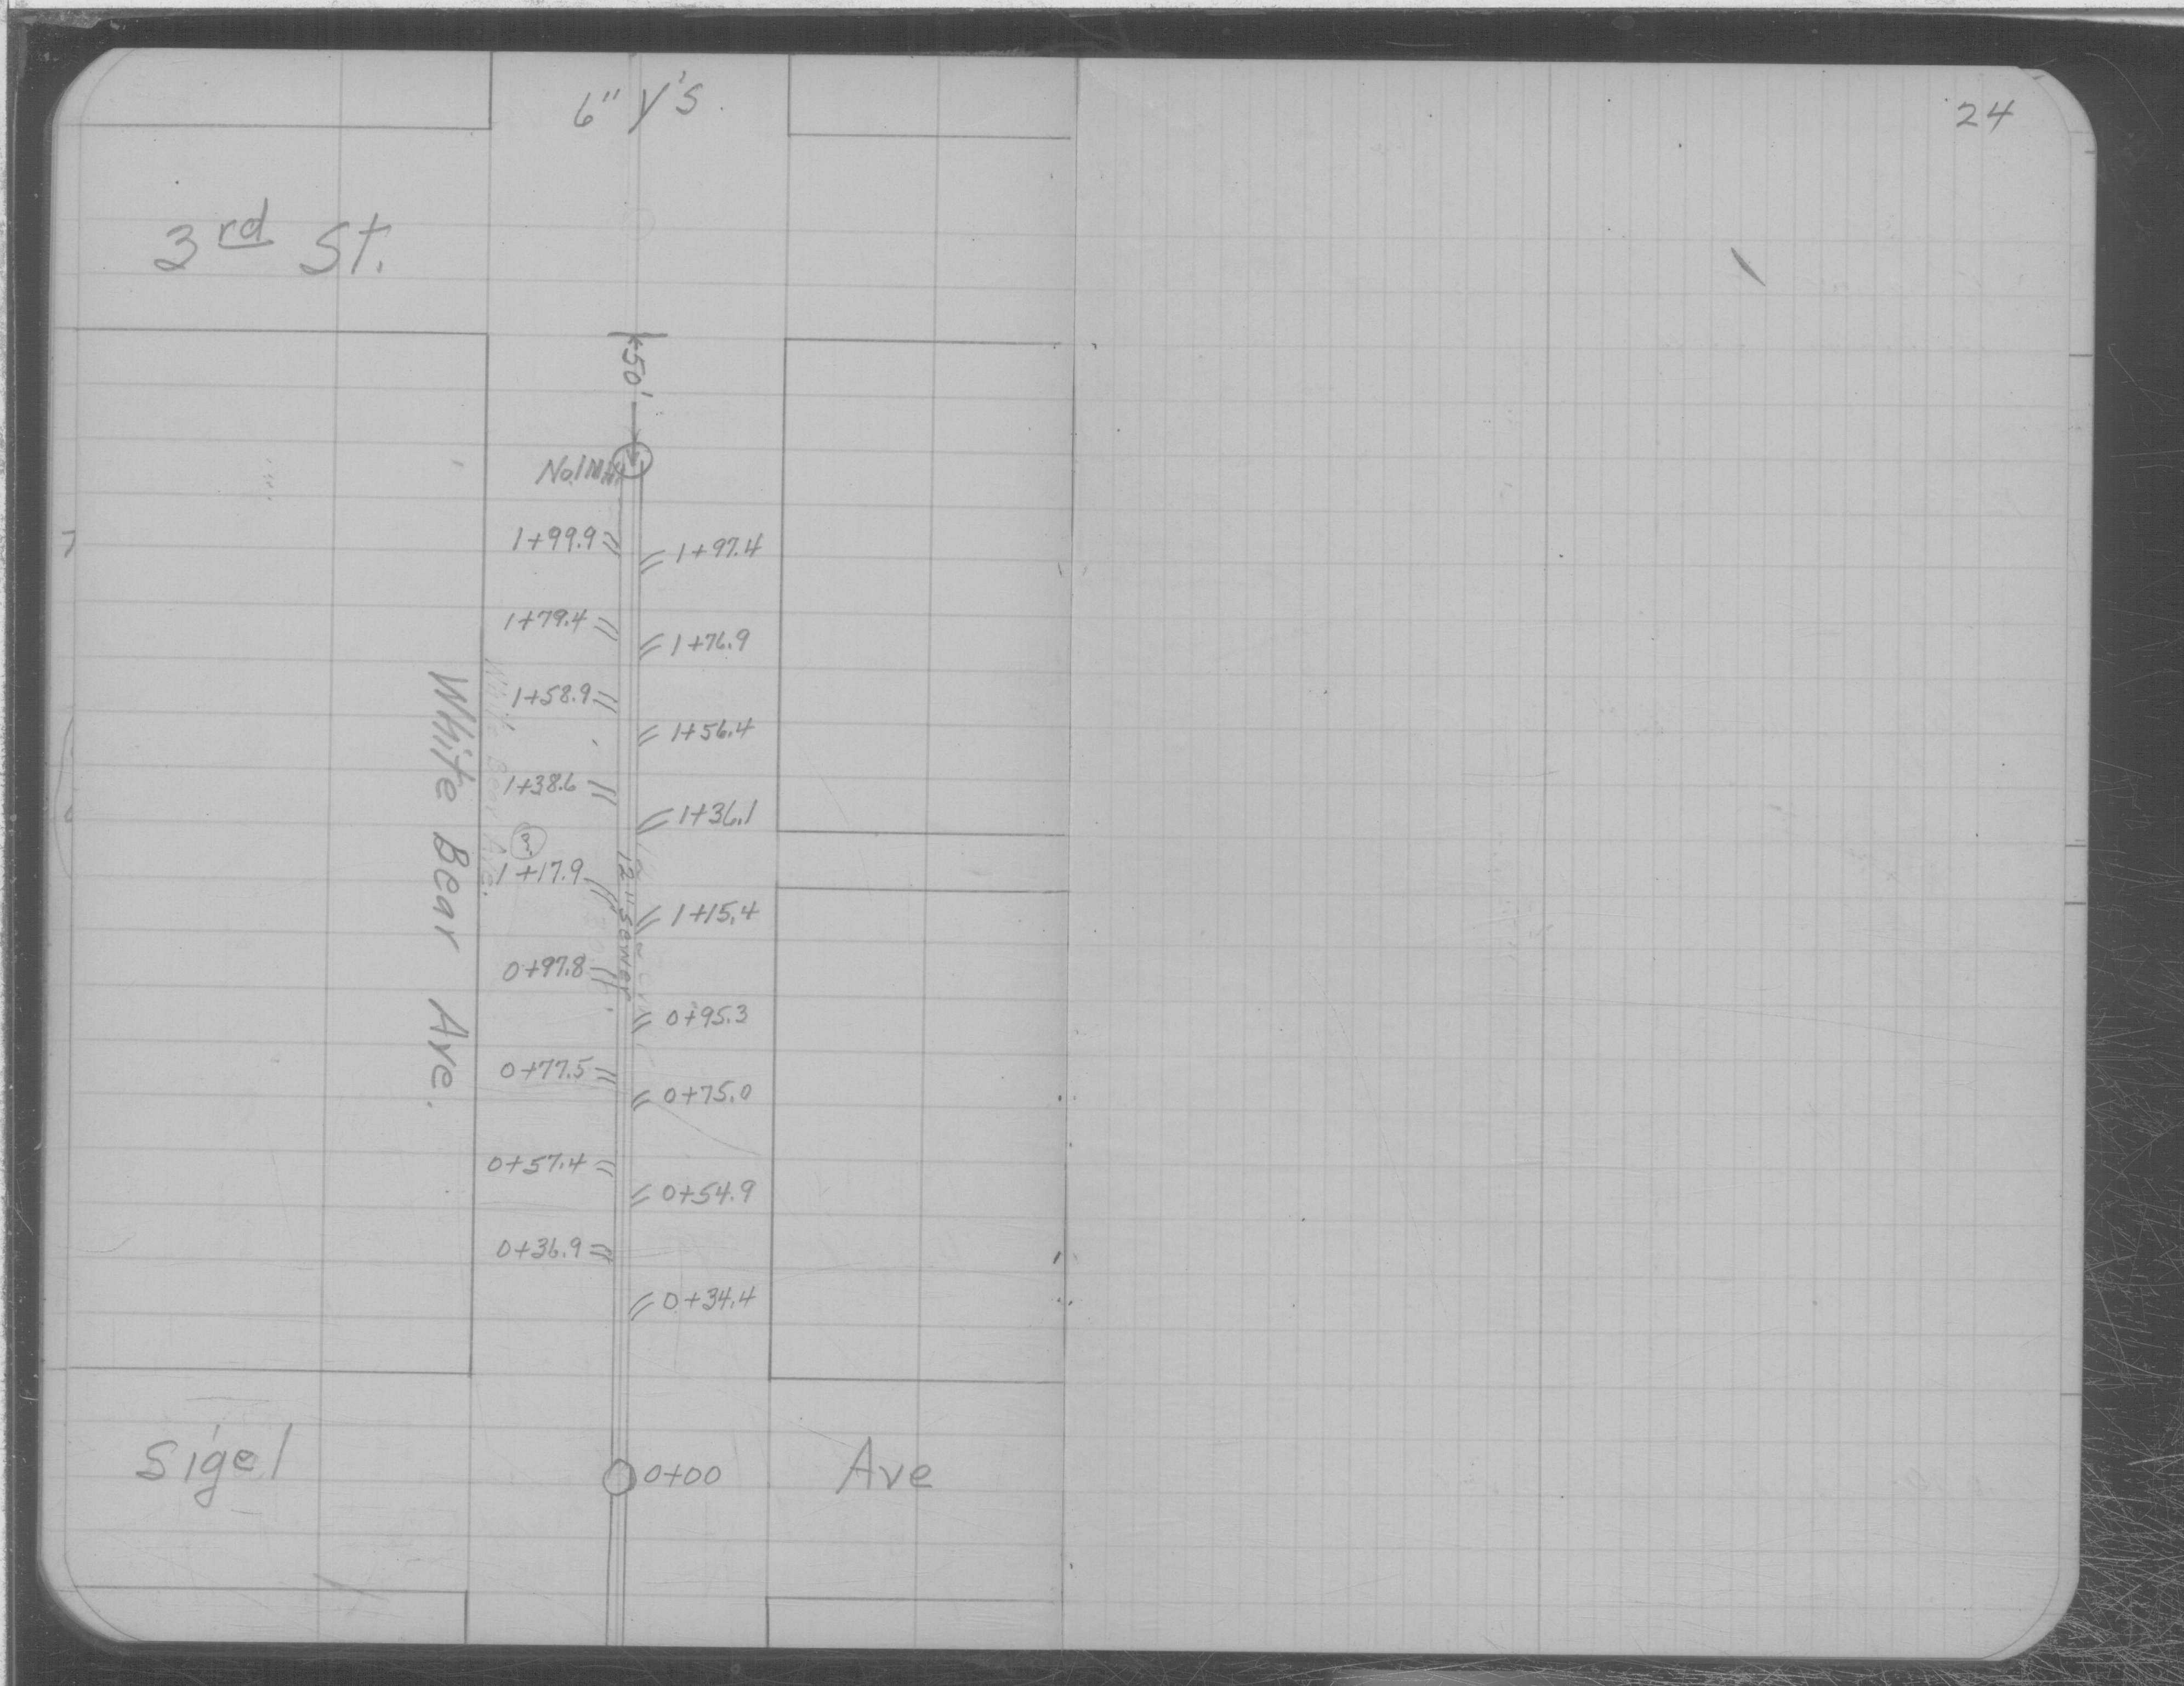 6" Y's
24
3rd St.
50'
No 1 MH
1+99.9
1+97.4
1+79.4
1+76.9
1+58.9
1+56.4
1+38.6
1+36.1
3
1+17.9
1+15.4
12" sewer
White Bear Ave.
White Bear Ave.
0+97.8
0+95.3
0+77.5
0+75.0
0+57.4
0+54.9
0+36.9
0+34.4
Sigel Ave
0+00